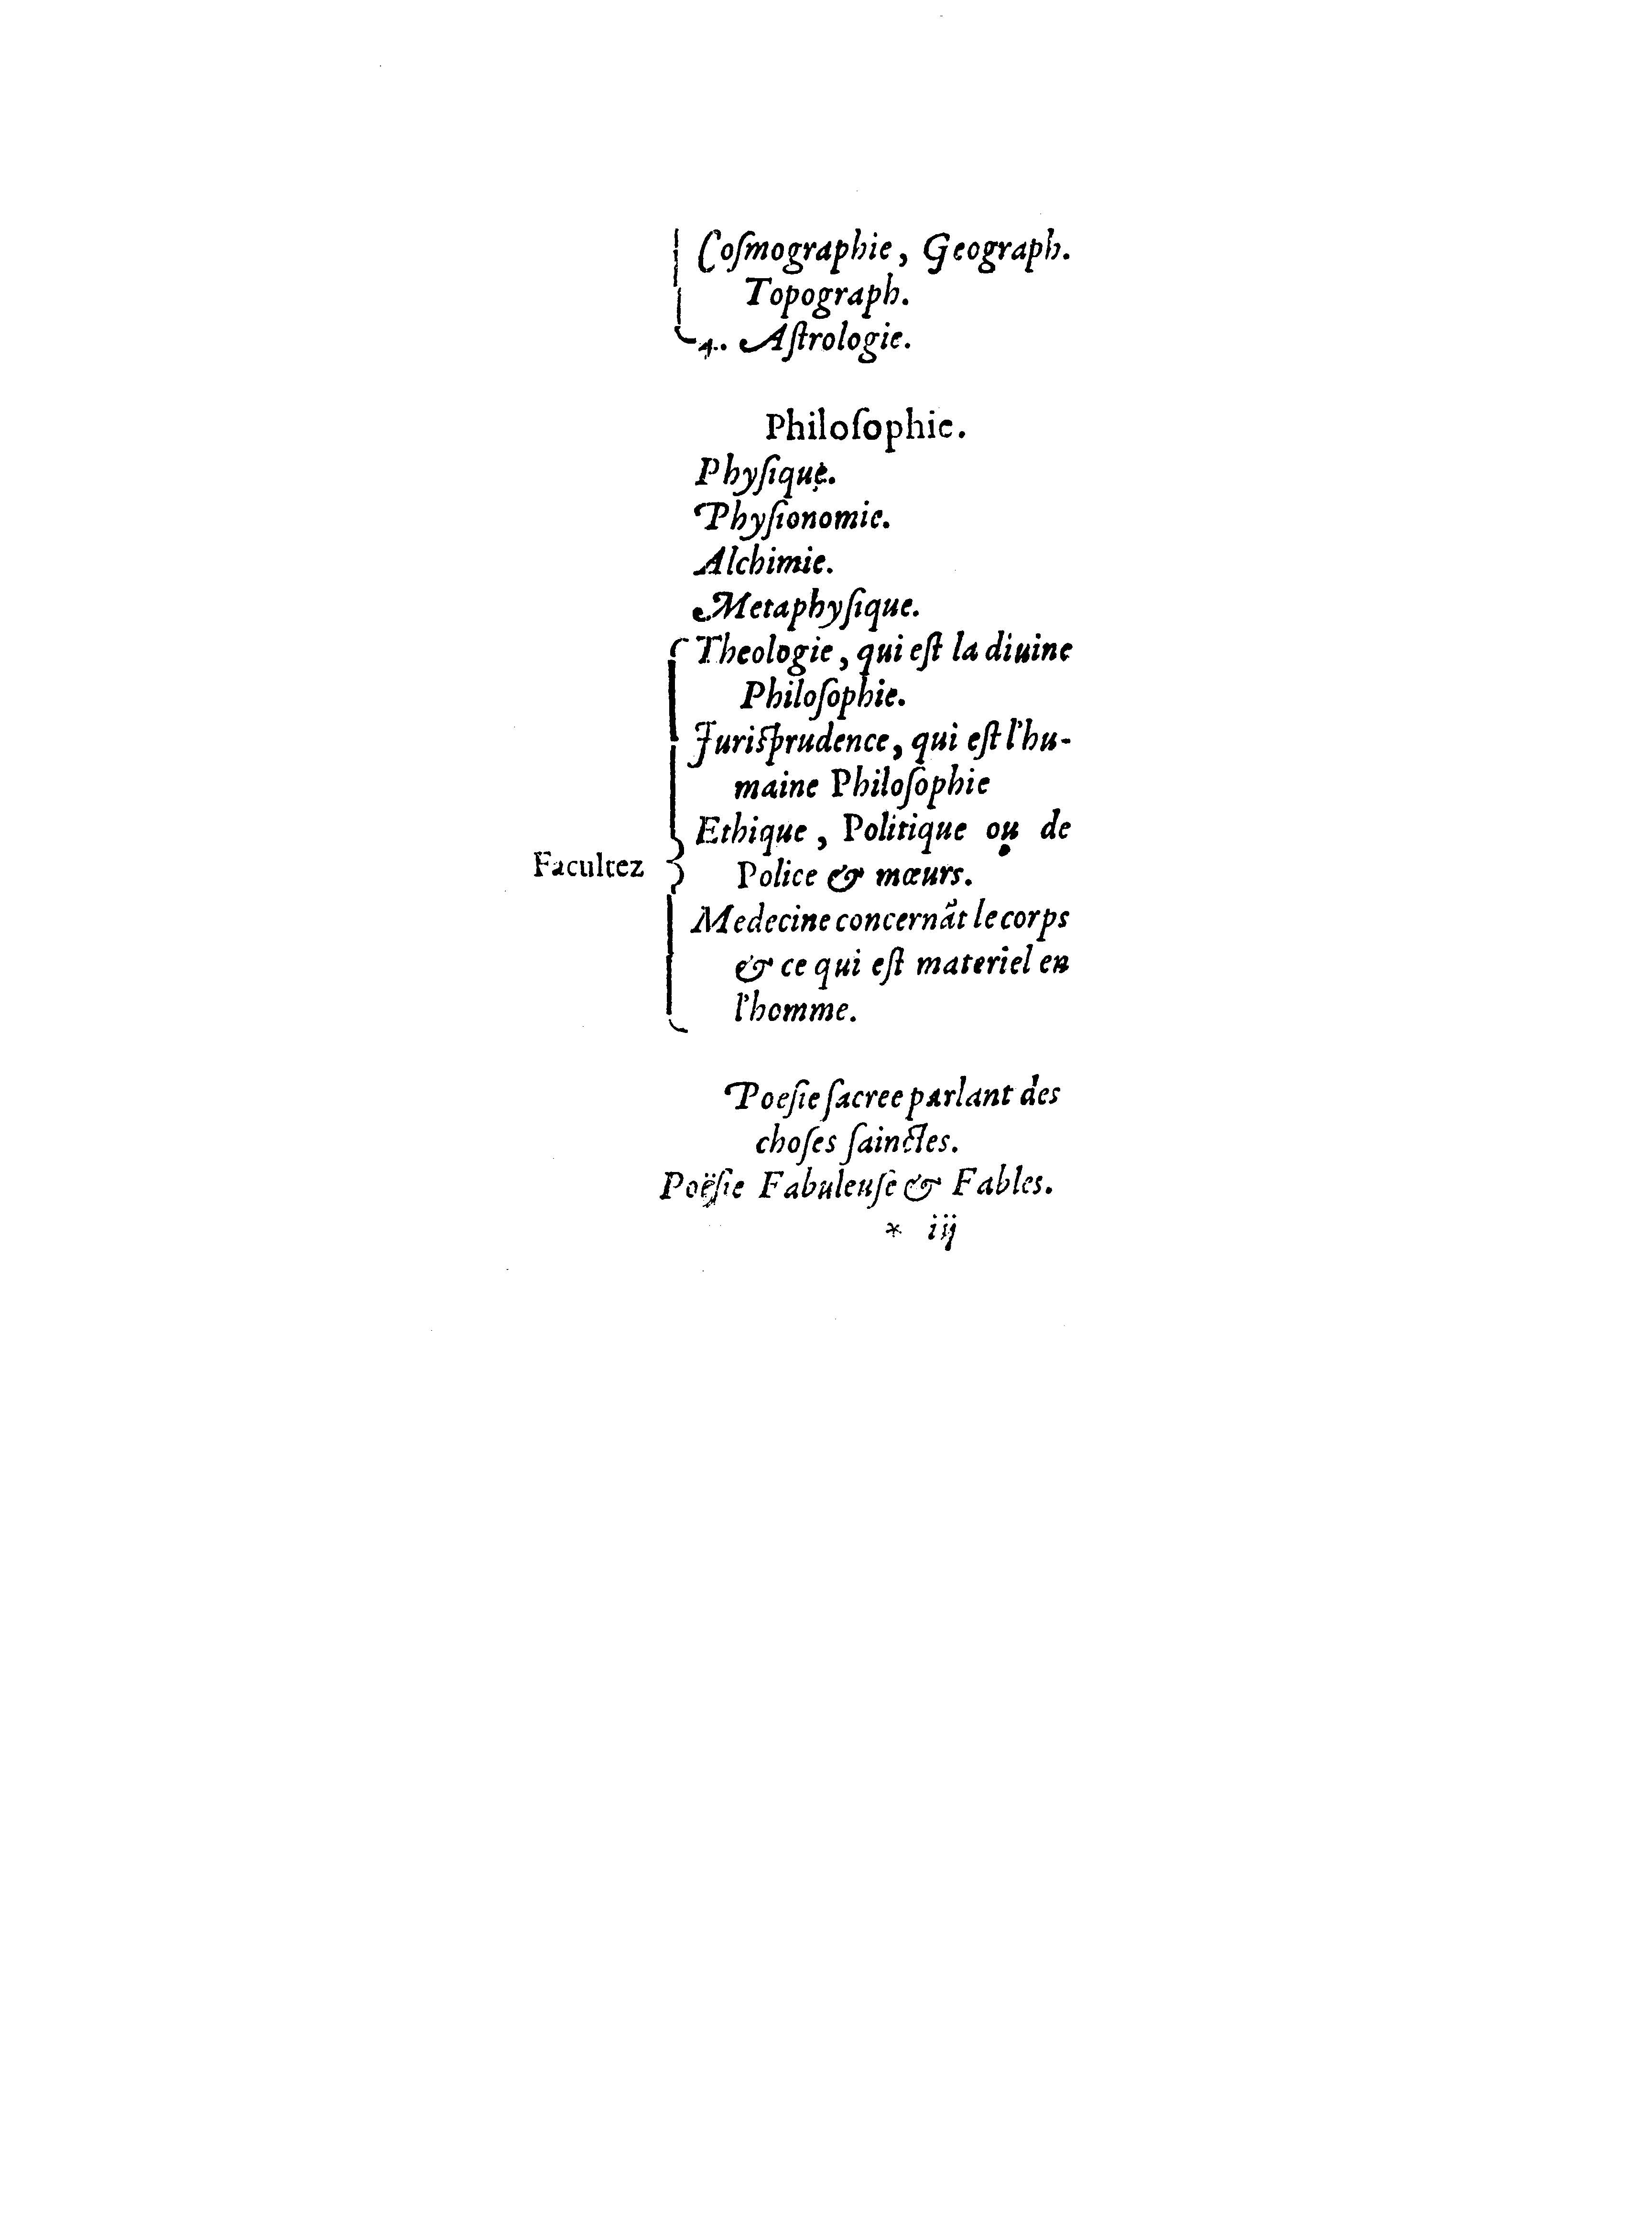 Coſmographie, Geograph.
Topograph.
4. Aſtrologie.
Philoſophie.
Phyſique.
Phyſionomie.
Alchimie.
Metaphyſique.
Theologie, qui eſt la diuine
Philoſophie.
Juriſprudence, qui eſt l'hu-
maine Philoſophie
Ethique, Politique ou de
Facultez
Police & mœurs.
Medecine concernāt le corps
& ce qui eſt materiel en
l'homme.
Poeſie ſacree parlant des
choſes ſainctes.
Poëſie Fabuleuſe & Fables.
* iij